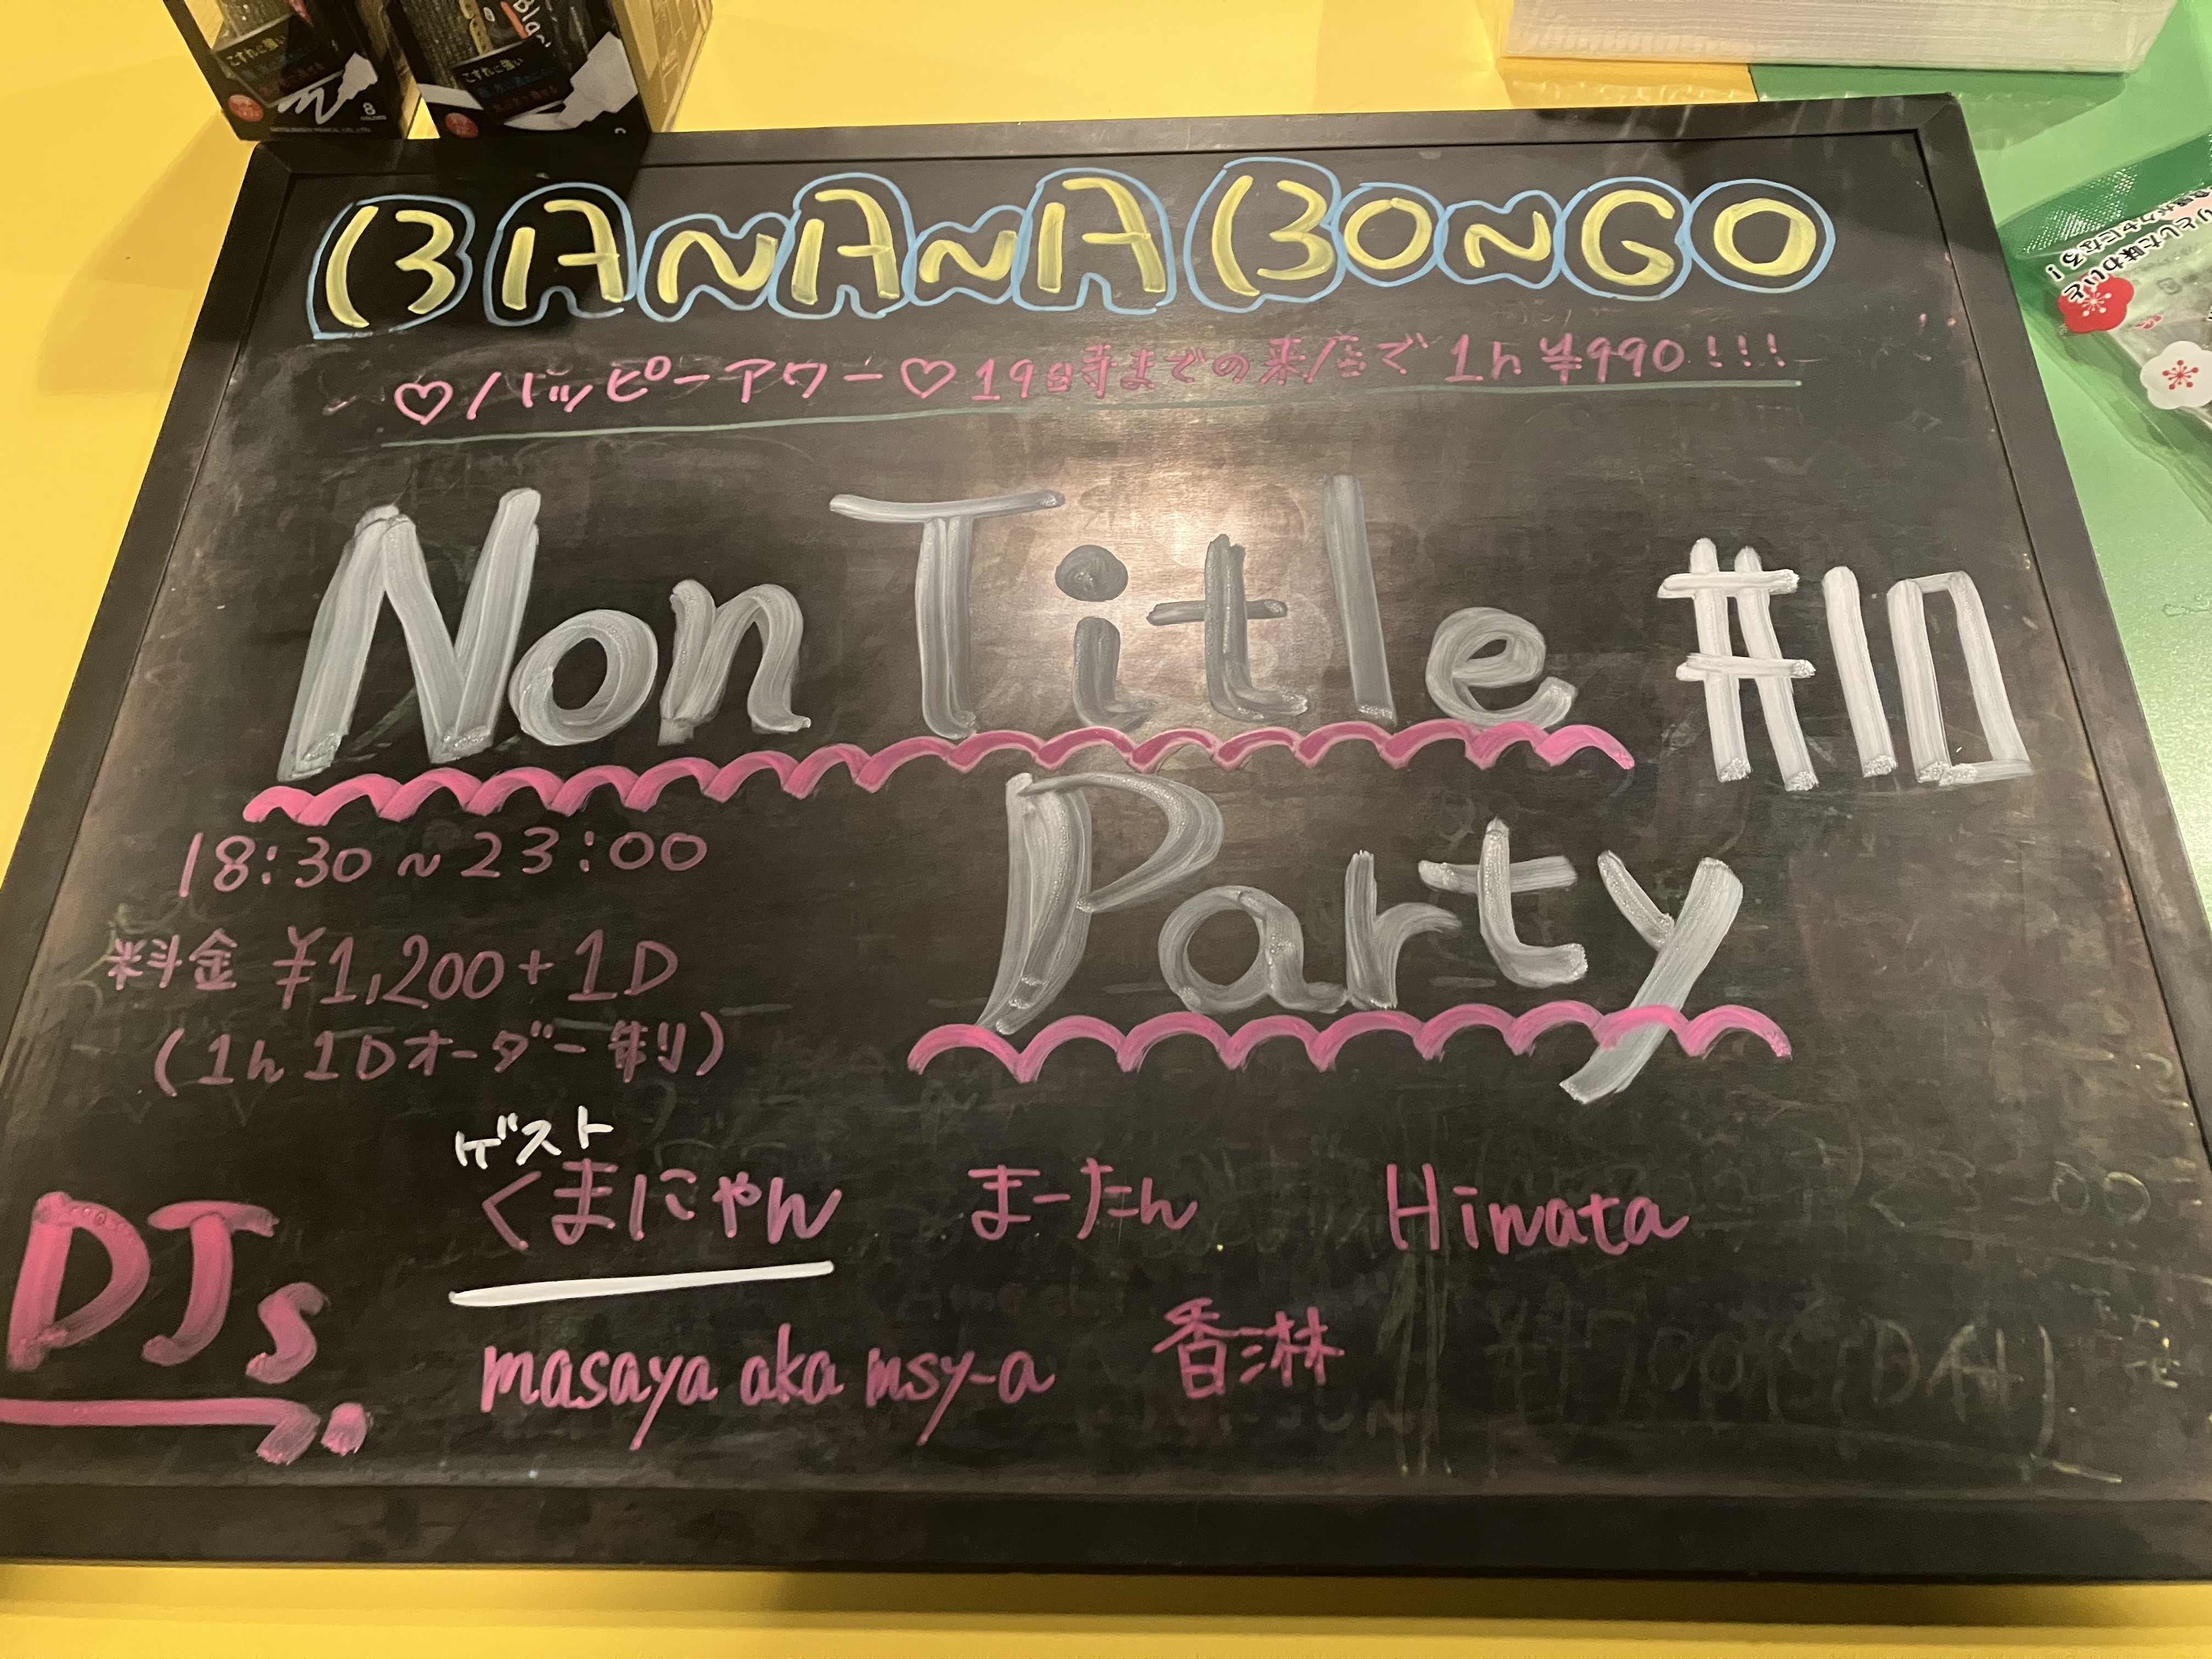 BANANA BONGO
♡ハッピーアワー♡19時までの来店で 1h ¥990!!!
Non Title #10
Party
18:30~23:00
料金 ¥1,200+1D
(1h 1Dオーダー制)
ゲスト
DJs
くまにゃん まーたん Hinata
masaya aka msy-a 香淋
こすれに強い
こすれに強い